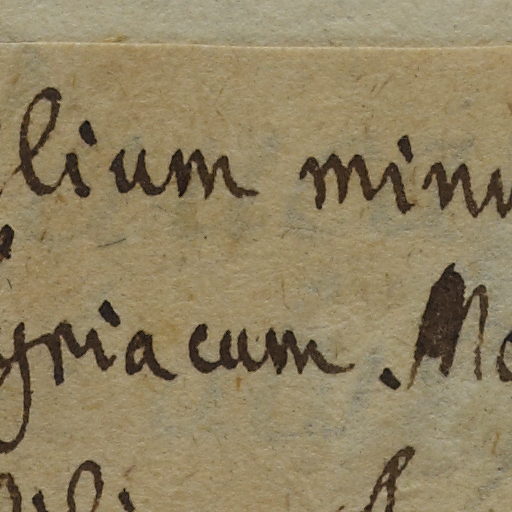 lium minu
yriacum. Mo